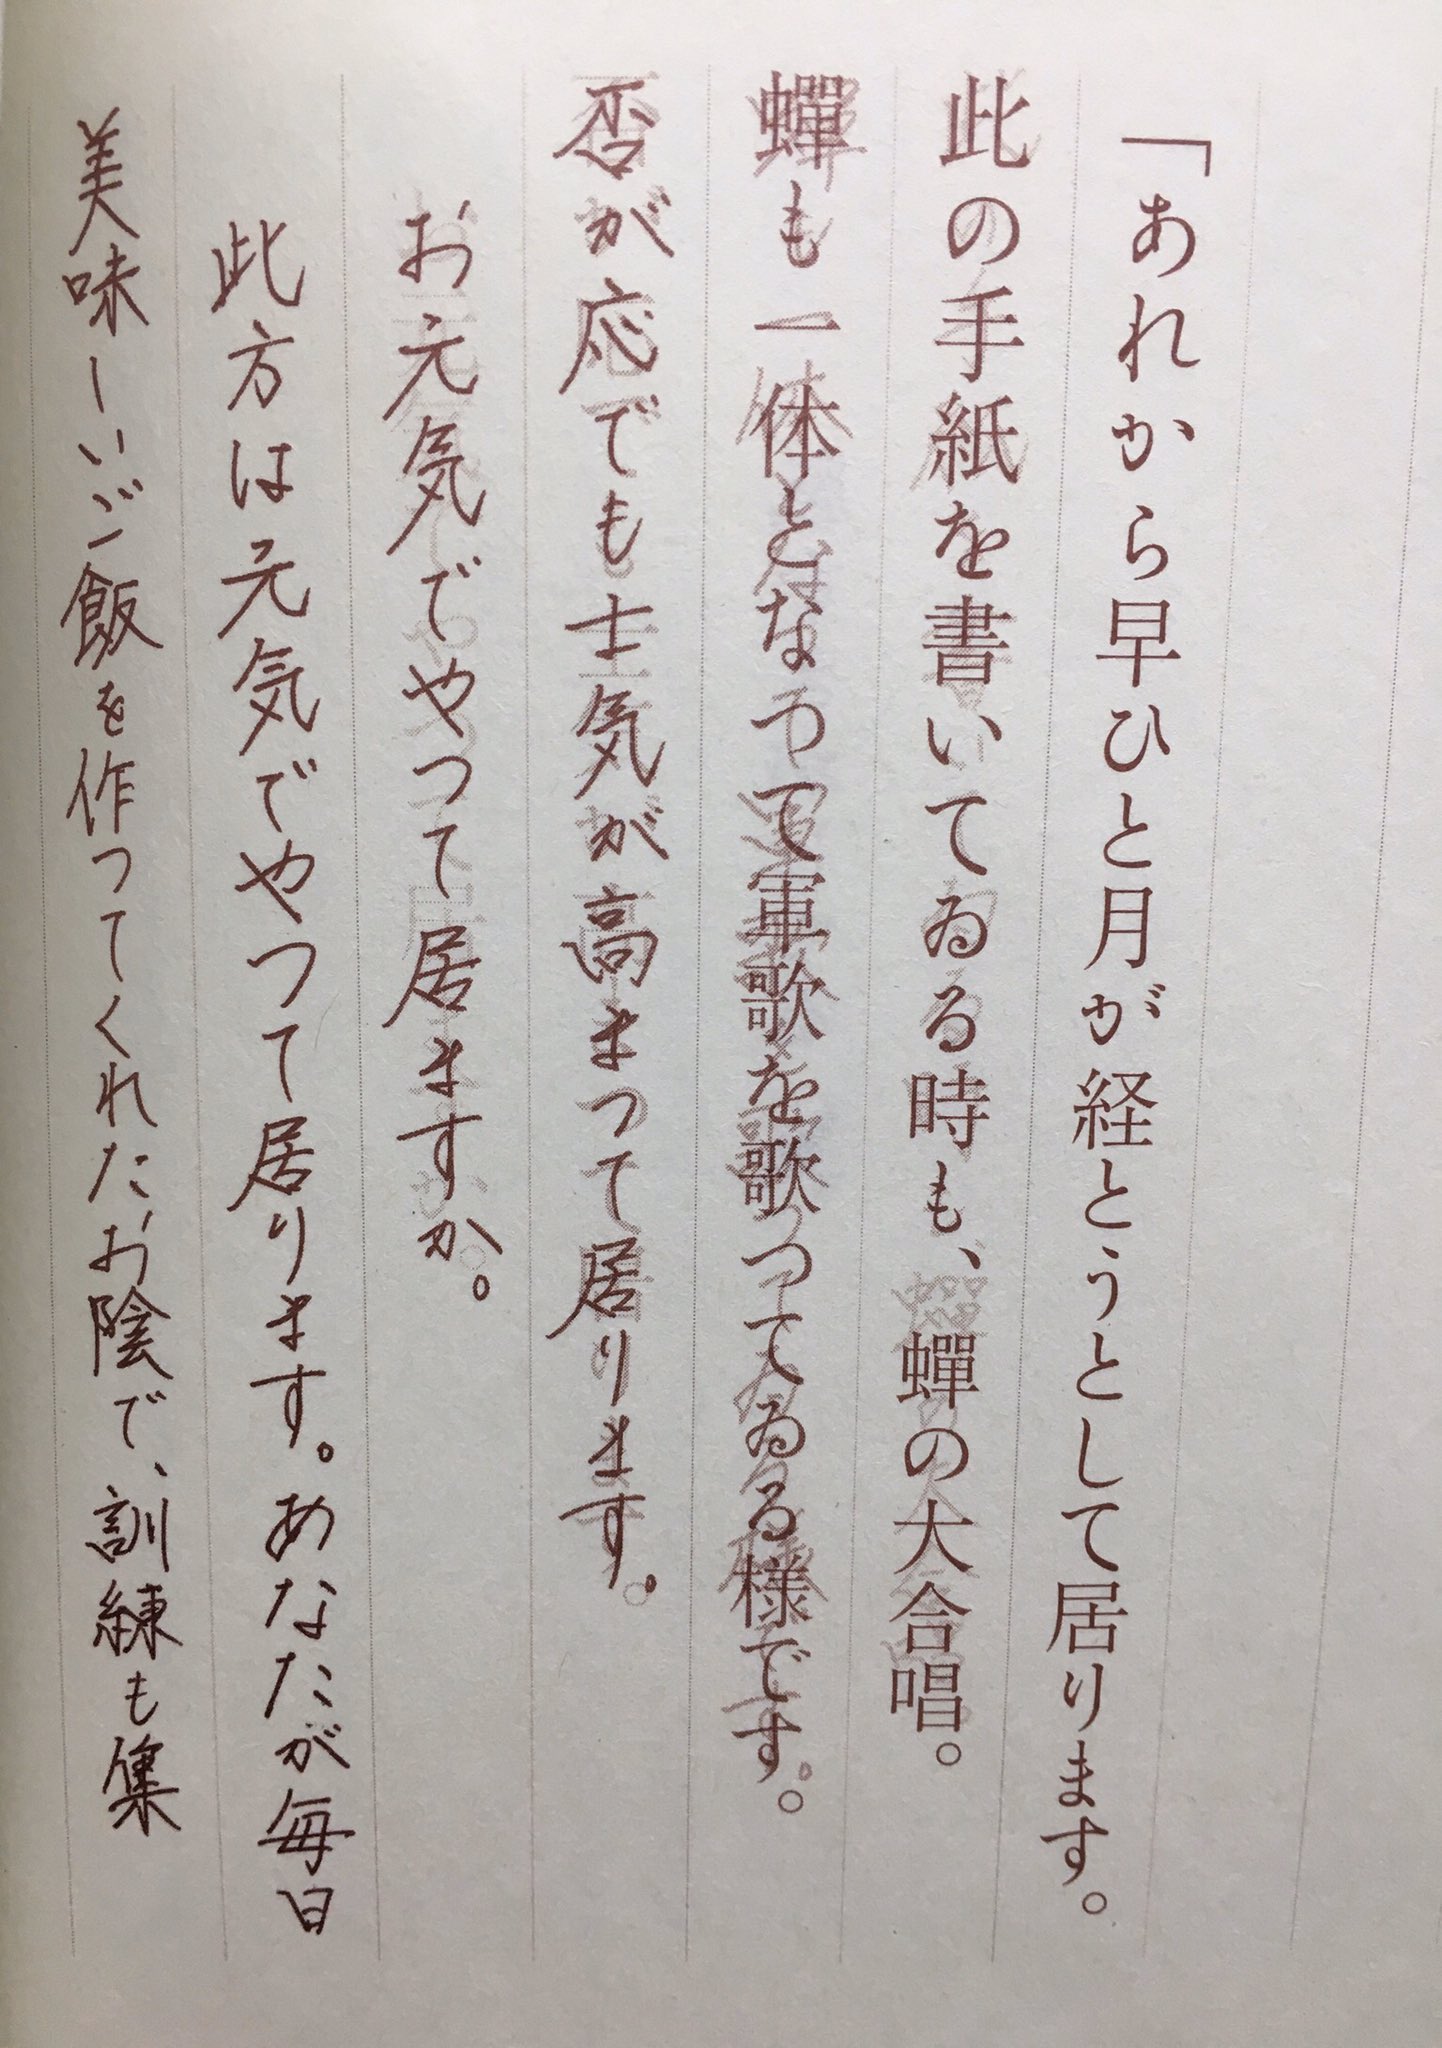 「あれから早ひと月が経とうとして居ります。
此の手紙を書いてゐる時も、蟬の大合唱。
蟬も一体となつて軍歌を歌つてゐる様です。
否が応でも士気が高まつて居ります。
お元気でやつて居ますか。
此方は元気でやつて居ります。あなたが毎日
美味しいご飯を作ってくれたお陰で、訓練も集